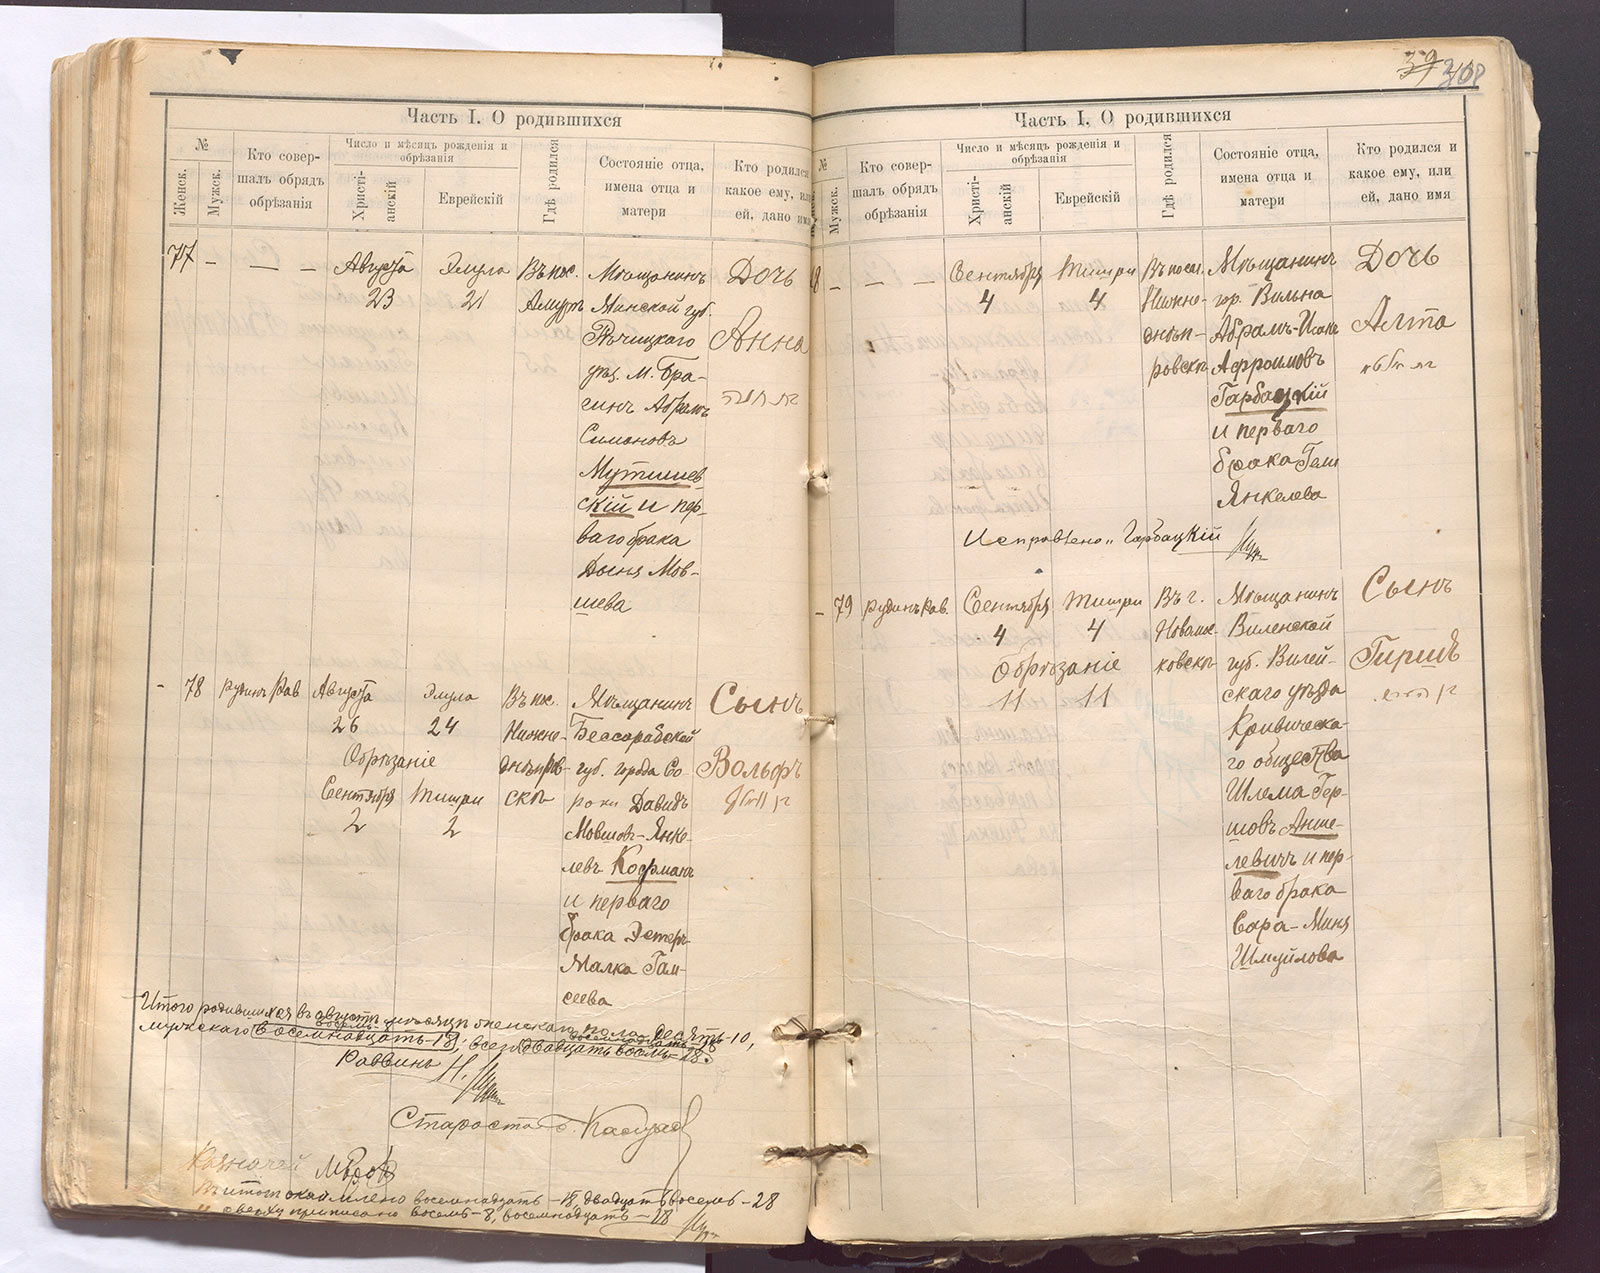 Часть I. О родившихся
№
Женск.
Мужск.
Кто совер-
шалъ обрядъ
обрѣзанія
Число и мѣсяцъ рожденія и
обрѣзанія
Христі-
анскій
Еврейскій
Гдѣ родился
Состояніе отца,
имена отца и
матери
Кто родился
какое ему, или
ей, дано имя
77 – — –
Августа
23
Элула
21
Въ пос.
Амуръ
Мѣщанинъ
Минской губ.
Рѣчицкаго
уѣз. М. Бра-
гинъ Абрамъ
Симоновъ
Мутишев-
скій и пер-
ваго брака
Дыня Мов-
шева
Дочь
Анна
78 Рудинъ Рав
Августа
26
Элула
24
Обрѣзаніе
Сентября
2
Тишри
2
Въ пос.
Нижне-
днѣпров-
скѣ
Мѣщанинъ
Бессарабской
губ. города Со-
роки Давидъ
Мовшов-Янке-
левъ Кофманъ
и перваго
брака Эстеръ-
Малка Гам-
сеева
Сынъ
Вольфъ
Итого родившихся въ августѣ мѣсяцѣ женскаго пола десять-10,
восемь восемнадцать
мужскаго восемнадцать-18, всего двадцать восемь-28.
Раввинъ
Староста
Казначей
Въ итогѣ оказ восемнадцать-18, двадцать восемь-28
сверху приписано восемь-8, восемнадцать-18
39 308
Часть I. О родившихся
№
Мужск.
Кто совер-
шалъ обрядъ
обрѣзанія
Число и мѣсяцъ рожденія и
обрѣзанія
Христі-
анскій
Еврейскій
Гдѣ родился
Состояніе отца,
имена отца и
матери
Кто родился и
какое ему, или
ей, дано имя
8 – – –
Сентября
4
Тишри
4
Въ посел.
Нижне-
днѣп-
ровскѣ
Мѣщанинъ
гор. Вильна
Абрамъ-Исаак
Афроимовъ
Гарбацкій
и перваго
брака Геня
Янкелева
Дочь
Алта
Исправлено „Гарбацкій
79 Рудинъ Рав.
Сентября
4
Тишри
4
Обрѣзаніе
11 11
Въ г.
Новомос-
ковскѣ
Мѣщанинъ
Виленской
губ. Вилей-
скаго уѣзда
Кривическа-
го общества
Шлема Гер-
шовъ Анше-
левичъ и пер-
ваго брака
Сара-Миня
Шмуйлова
Сынъ
Гиршъ